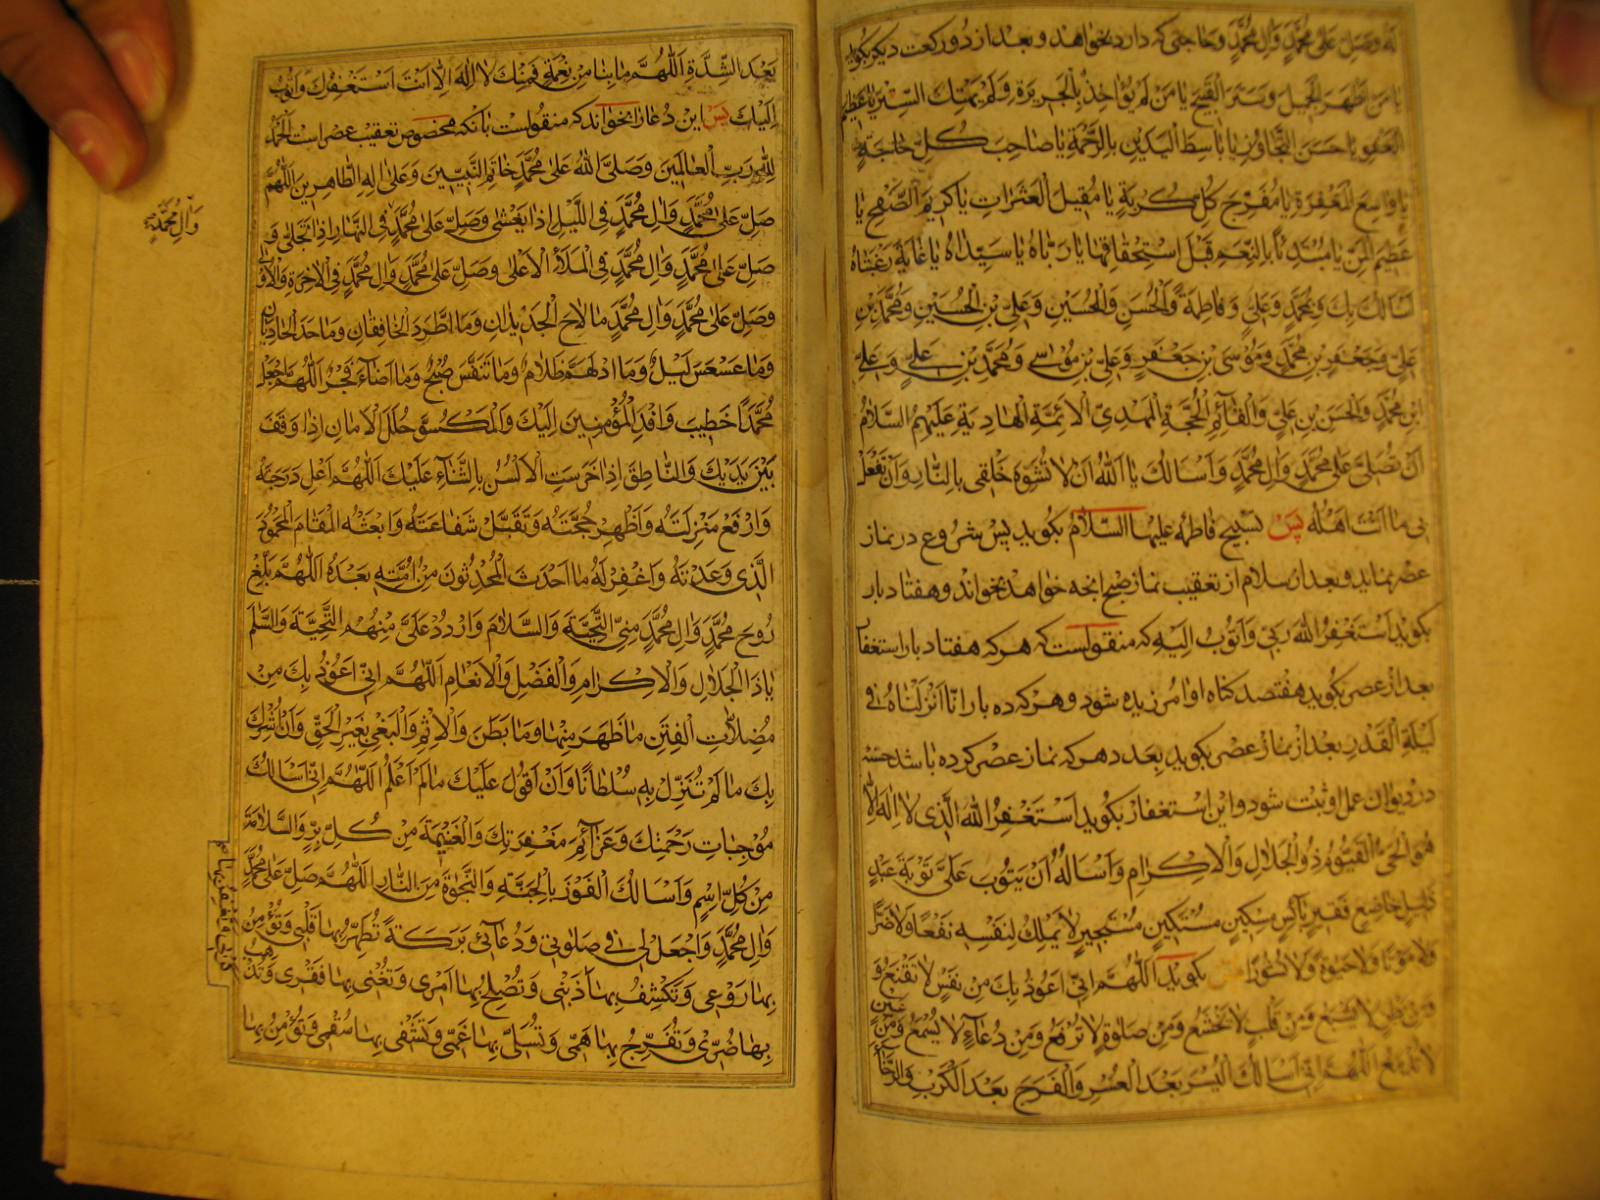 اله وصل على محمد وال محمد وحاجتی که دارد بخواهد و بعد از دو رکعت دیکر بکوید
یا من اظهر الجمیل وستر القبیح یا من لم یؤاخذ بالجریرة ولم یهتک الستر یا عظیم
العفو یا حسن التجاوز یا باسط الیدین بالرحمة یا صاحب کل حاجة
یا واسع المغفرة یا مفرج کل کربة یا مقیل العثرات یا کریم الصفح یا
عظیم المن یا مبتدئا بالنعم قبل استحقاقها یا رباه یا سیداه یا غایة رغبتاه
اسالک بک و محمد وعلی وفاطمة والحسن والحسین وعلی بن الحسین ومحمد بن
علی وجعفر بن محمد وموسی بن جعفر وعلی بن موسی ومحمد بن علی وعلی
ابن محمد والحسن بن علی والقائم الحجة المهدی الائمة الهادیة علیهم السلام
ان تصلی علی محمد وال محمد واسالک یا الله ان لا تشوه خلقی بالنار وان تفعل
بی ما انت اهله پس تسبیح فاطمه علیها السلام بکوید پس شروع در نماز
عصر نماید و بعد از سلام از تعقیب نماز صبح انچه خواهد بخواند و هفتاد بار
بکوید استغفر الله ربی واتوب الیه که منقولست که هر که هفتاد بار استغفار
بعد از عصر بکوید هفتصد کناه او امرزیده شود و هر که ده بار انا انزلناه فی
لیلة القدر بعد از نماز عصر بکوید بعدد هر که نماز عصر کرده باشد حسنه
در دیوان عمل او ثبت شود و این استغفار بکوید استغفر الله الذی لا اله الا
هو الحی القیوم ذو الجلال والاکرام واساله ان یتوب علی توبة عبد
ذلیل خاضع فقیر بائس مسکین مستکین مستجیر لا یملک لنفسه نفعا ولا ضرا
ولا موتا ولا حیوة ولا نشورا پس بکوید اللهم انی اعوذ بک من نفس لا تقنع و
ومن بطن لا یشبع ومن قلب لا یخشع ومن صلوة لا ترفع ومن دعاء لا یسمع ومن عین
لا تدمع اللهم انی اسالک الیسر بعد العسر والفرج بعد الکرب والرخاء
بعد الشدة اللهم ما بنا من نعمة فمنک لا اله الا انت استغفرک واتوب
الیک پس این دعا را بخواند که منقولست بانکه مخصوص تعقیب عصر است الحمد
لله رب العالمین وصلی الله علی محمد خاتم النبیین وعلی اله الطاهرین اللهم
صل علی محمد وال محمد فی اللیل اذا یغشی وصل علی محمد فی النهار اذا تجلی و
وال محمد صح
صل علی محمد وال محمد فی الملأ الاعلی وصل علی محمد وال محمد فی الاخرة والاولی
وصل علی محمد وال محمد ما لاح الجدیدان وما اطرد الخافقان وما حدا الحادیان
وما عسعس لیل وما ادلهم ظلام وما تنفس صبح وما اضاء فجر اللهم اجعل
محمدا خطیب وافد المؤمنین الیک والمکسو حلل الامان اذا وقف
بین یدیک والناطق اذا خرست الالسن بالثناء علیک اللهم اعل درجته
وارفع منزلته واظهر حجته وتقبل شفاعته وابعثه المقام المحمود
الذی وعدته واغفر له ما احدث المحدثون من امته بعده اللهم بلغ
روح محمد وال محمد منی التحیة والسلام واردد علی منهم التحیة والسلم
یا ذا الجلال والاکرام والفضل والانعام اللهم انی اعوذ بک من
مضلات الفتن ما ظهر منها وما بطن والاثم والبغی بغیر الحق وان اشرک
بک ما لم تنزل به سلطانا وان اقول علیک ما لم اعلم اللهم انی اسالک
موجبات رحمتک وعزائم مغفرتک والغنیمة من کل بر والسلامة
من کل اثم واسالک الفوز بالجنة والنجوة من النار اللهم صل علی محمد
وال محمد واجعل لی فی صلوتی ودعائی برکة تطهر بها قلبی وتؤمن
بها روعی وتکشف بها اذیتی وتصلح بها امری وتغنی بها فقری وتذهب
بها ضری وتفرج بها همی وتسلی بها غمی وتشفی بها سقمی وتؤمن بها